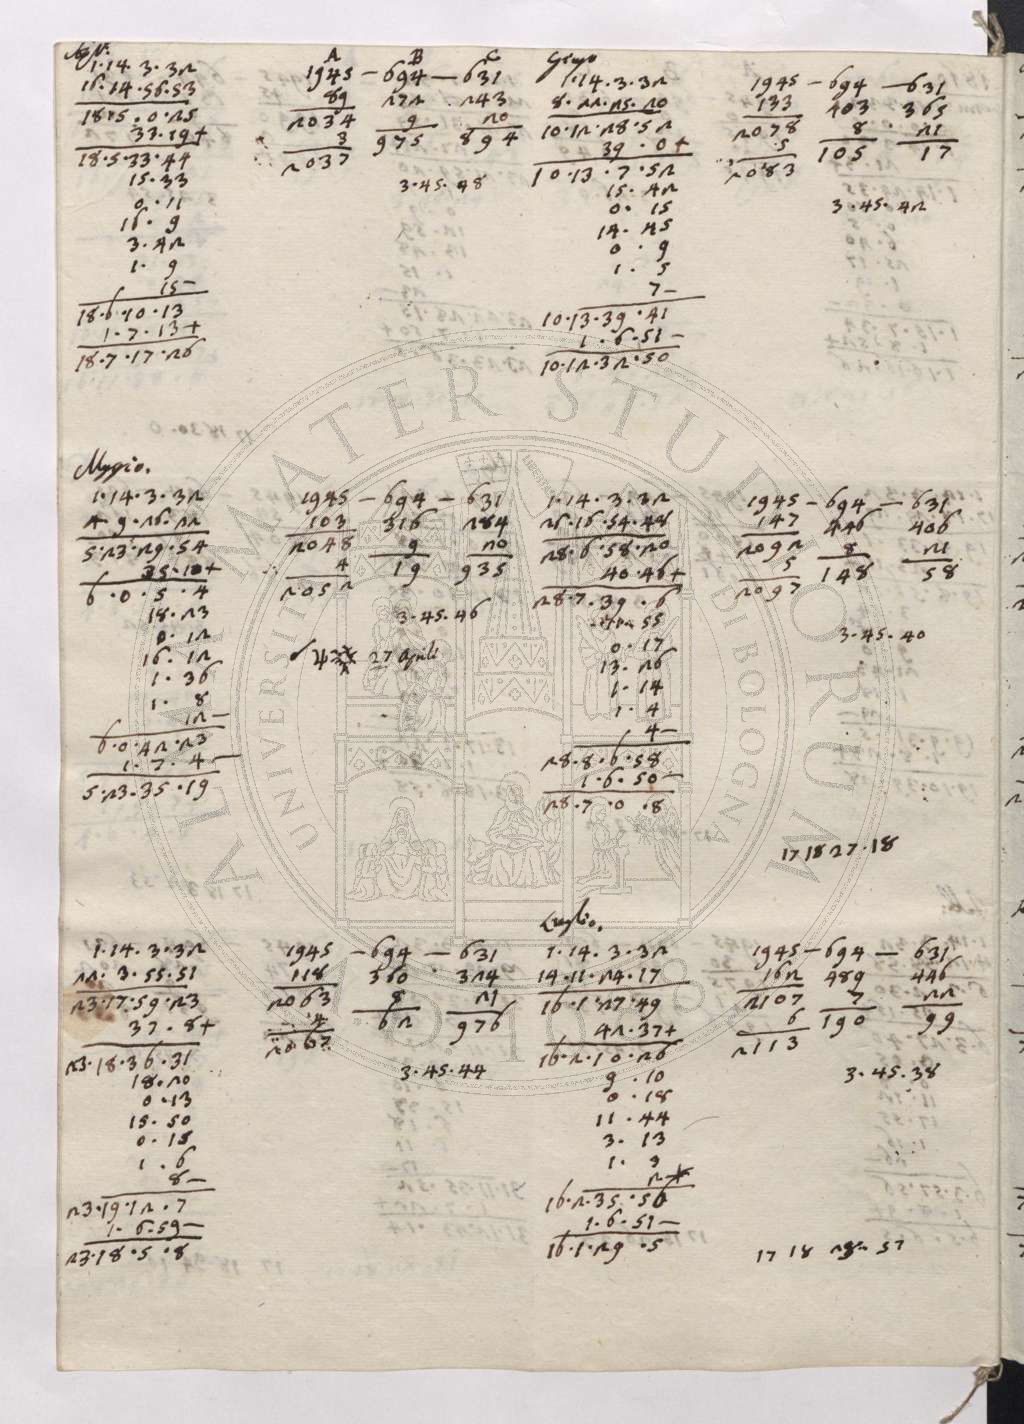 1.14.3.32
16.14.56.53
18.5.0.25
33.19+
18.5.33.44
15.33
0.11
16.9
3.42
1.9
15-
18.6.10.13
1.7.13+
18.7.17.26
A B C
1945 - 694 - 631
89 272 243
2034 9 20
3 975 894
2037
3.45.48
1.14.3.32
8.22.25.20
10.12.28.52
39.0+
10.13.7.52
15.42
0.15
14.45
0.9
1.5
7-
10.13.39.41
1.6.51-
10.12.32.50
1945 - 694 - 631
133 403 365
2078 8 21
5 105 17
2083
3.45.42
Maggio.
1.14.3.32
4.9.26.22
5.23.29.54
35.10+
6.0.5.4
18.23
0.12
16.12
1.36
1.8
12-
6.0.42.23
1.7.4-
5.23.35.19
1945 - 694 - 631
103 316 284
2048 9 20
4 19 935
2052
3.45.46
27 Aprili
1.14.3.32
26.16.54.48
28.6.58.20
40.46+
28.7.39.6
55
0.17
13.26
1.14
1.4
4-
28.8.6.58
1.6.50-
28.7.0.8
1945 - 694 - 631
147 446 406
2092 8 21
5 148 58
2097
3.45.40
17 18 27.18
1.14.3.32
22.3.55.51
23.17.59.23
37.8+
23.18.36.31
18.20
0.13
15.50
0.15
1.6
8-
23.19.12.7
1.6.59-
23.18.5.8
1945 - 694 - 631
118 360 324
2063 8 21
4 62 976
2067
3.45.44
Luglio.
1.14.3.32
14.11.24.17
16.1.27.49
42.37+
16.2.10.26
9.10
0.18
11.44
3.13
1.3
16.2.35.56
1.6.51-
16.1.29.5
1945 - 694 - 631
162 489 446
2107 7 22
6 190 99
2113
3.45.38
17 18 28.57